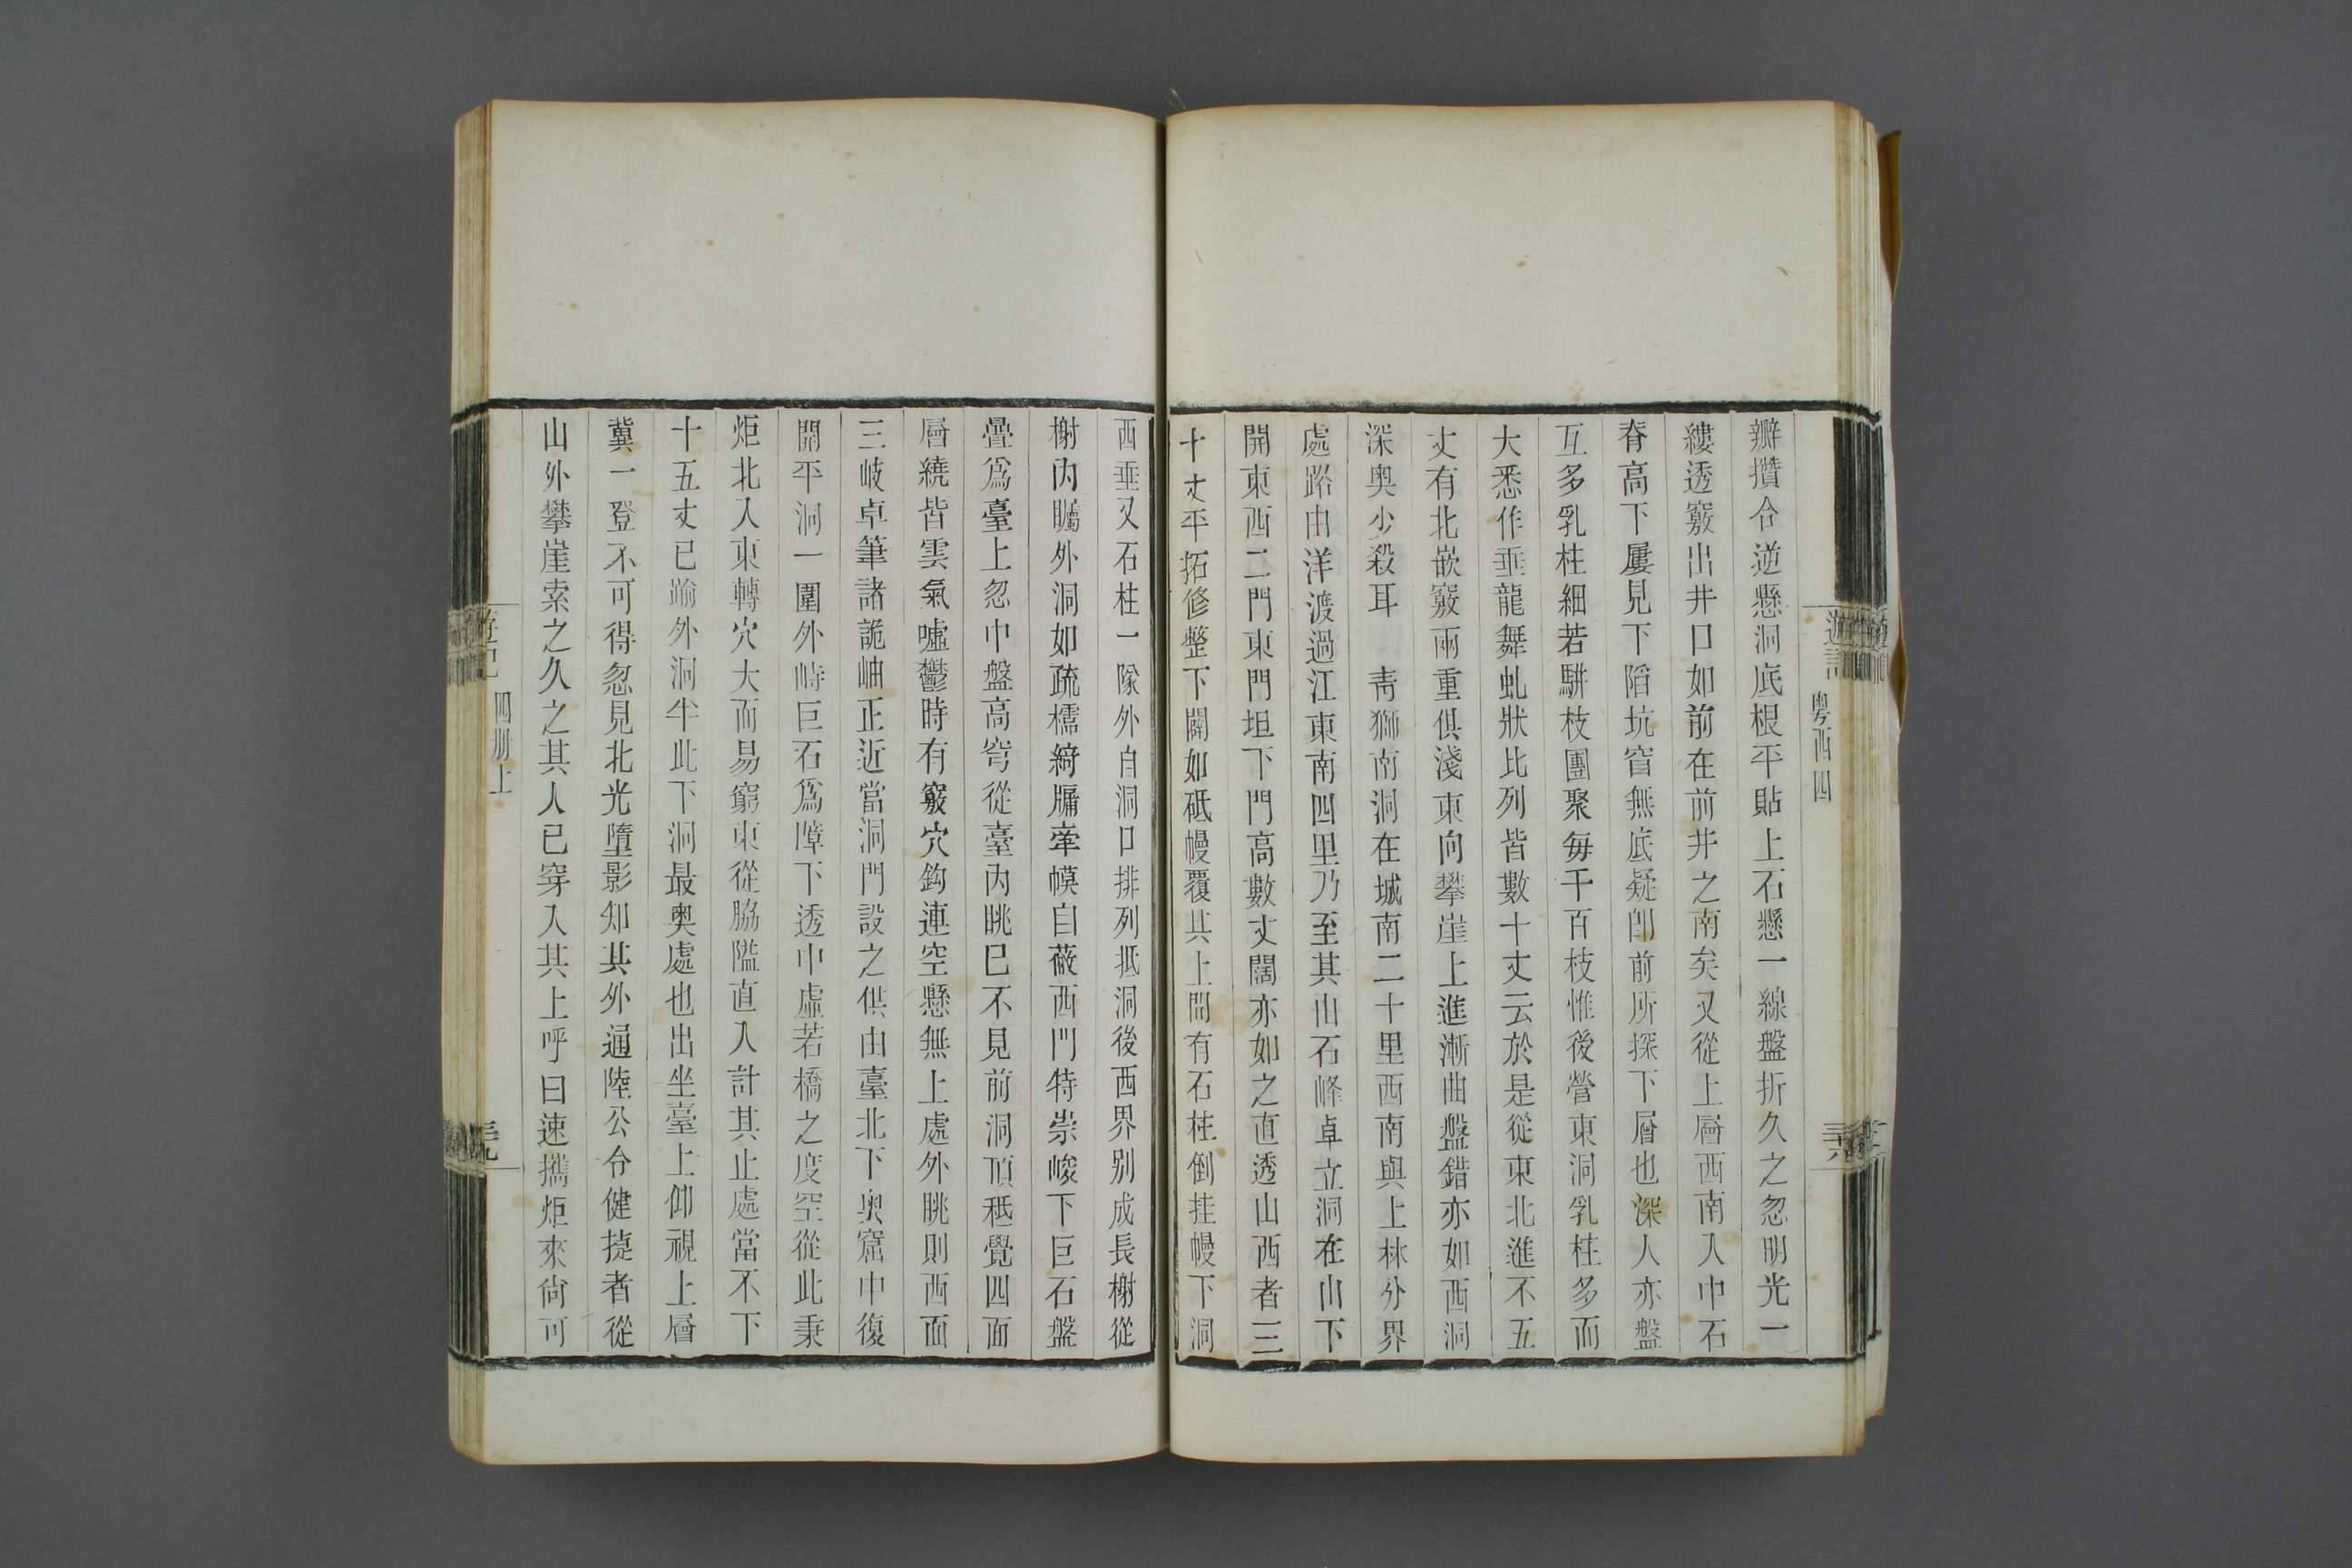 遊記
粵西四
瓣攢合逆懸洞底根平貼上石懸一線盤折久之忽明光一
縷透竅出井口如前在前井之南矣又從上層西南入中石
脊高下屢見下陷坑窞無底疑卽前所探下層也深人亦盤
互多乳柱細若駢枝團聚每千百枝惟後營東洞乳柱多而
大悉作垂龍舞虬狀比列皆數十丈云於是從東北進不五
丈有北嵌竅兩重俱淺東向攀崖上進漸曲盤錯亦如西洞
深奧少殺耳　靑獅南洞在城南二十里西南與上林分界
處路由洋渡過江東南四里乃至其山石峰卓立洞在山下
開東西二門東門坦下門高數丈闊亦如之直透山西者三
十丈平拓修整下闢如砥幔覆其上間有石柱倒挂幔下洞
西垂又石柱一隊外自洞口排列抵洞後西界別成長榭從
榭內矚外洞如疏櫺綺牖牽幙自蔽西門特崇峻下巨石盤
疊爲臺上忽中盤高穹從臺內眺已不見前洞頂秪覺四面
層繞皆雲氣噓鬱時有竅穴鉤連空懸無上處外眺則西面
三岐卓筆諸詭岫正近當洞門設之供由臺北下奧窟中復
開平洞一圍外峙巨石爲障下透中虛若橋之度空從此秉
炬北入東轉穴大而易窮東從脇隘直入計其止處當不下
十五丈已踰外洞半此下洞最奧處也出坐臺上仰視上層
冀一登不可得忽見北光墮影知其外通陸公令健㨗者從
山外攀崖索之久之其人已穿入其上呼曰速攜炬來尙可
遊記
四册上